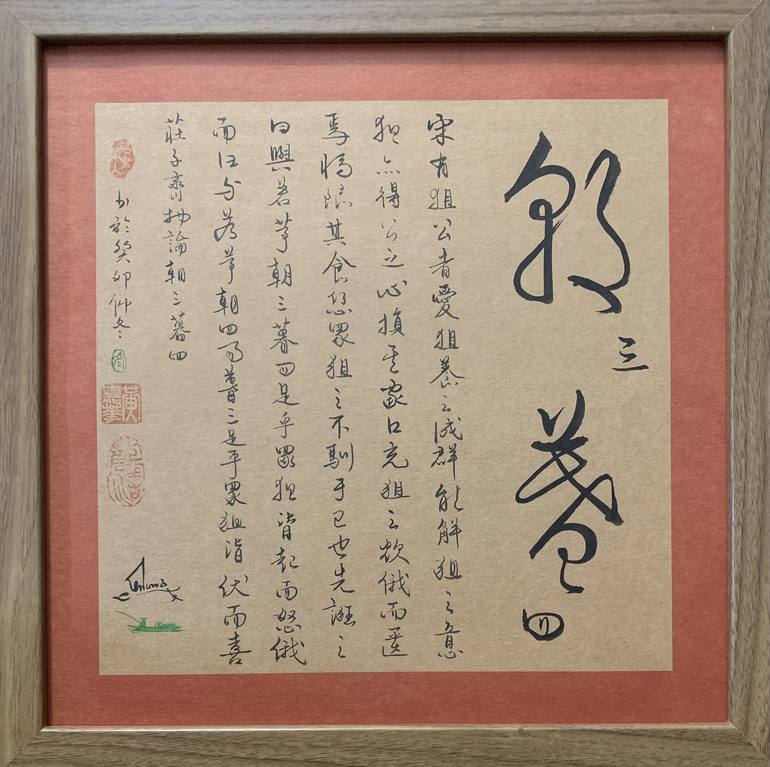 朝三暮四
宋有狙公者愛狙養之成群能解狙之意
狙亦得公之心損其家口充狙之欲俄而匱
焉將限其食恐眾狙之不馴于己也先誑之
曰與若芧朝三暮四足乎眾狙皆起而怒俄
而曰與若芧朝四而暮三足乎眾狙皆伏而喜
莊子齊物論朝三暮四
書於癸卯仲冬